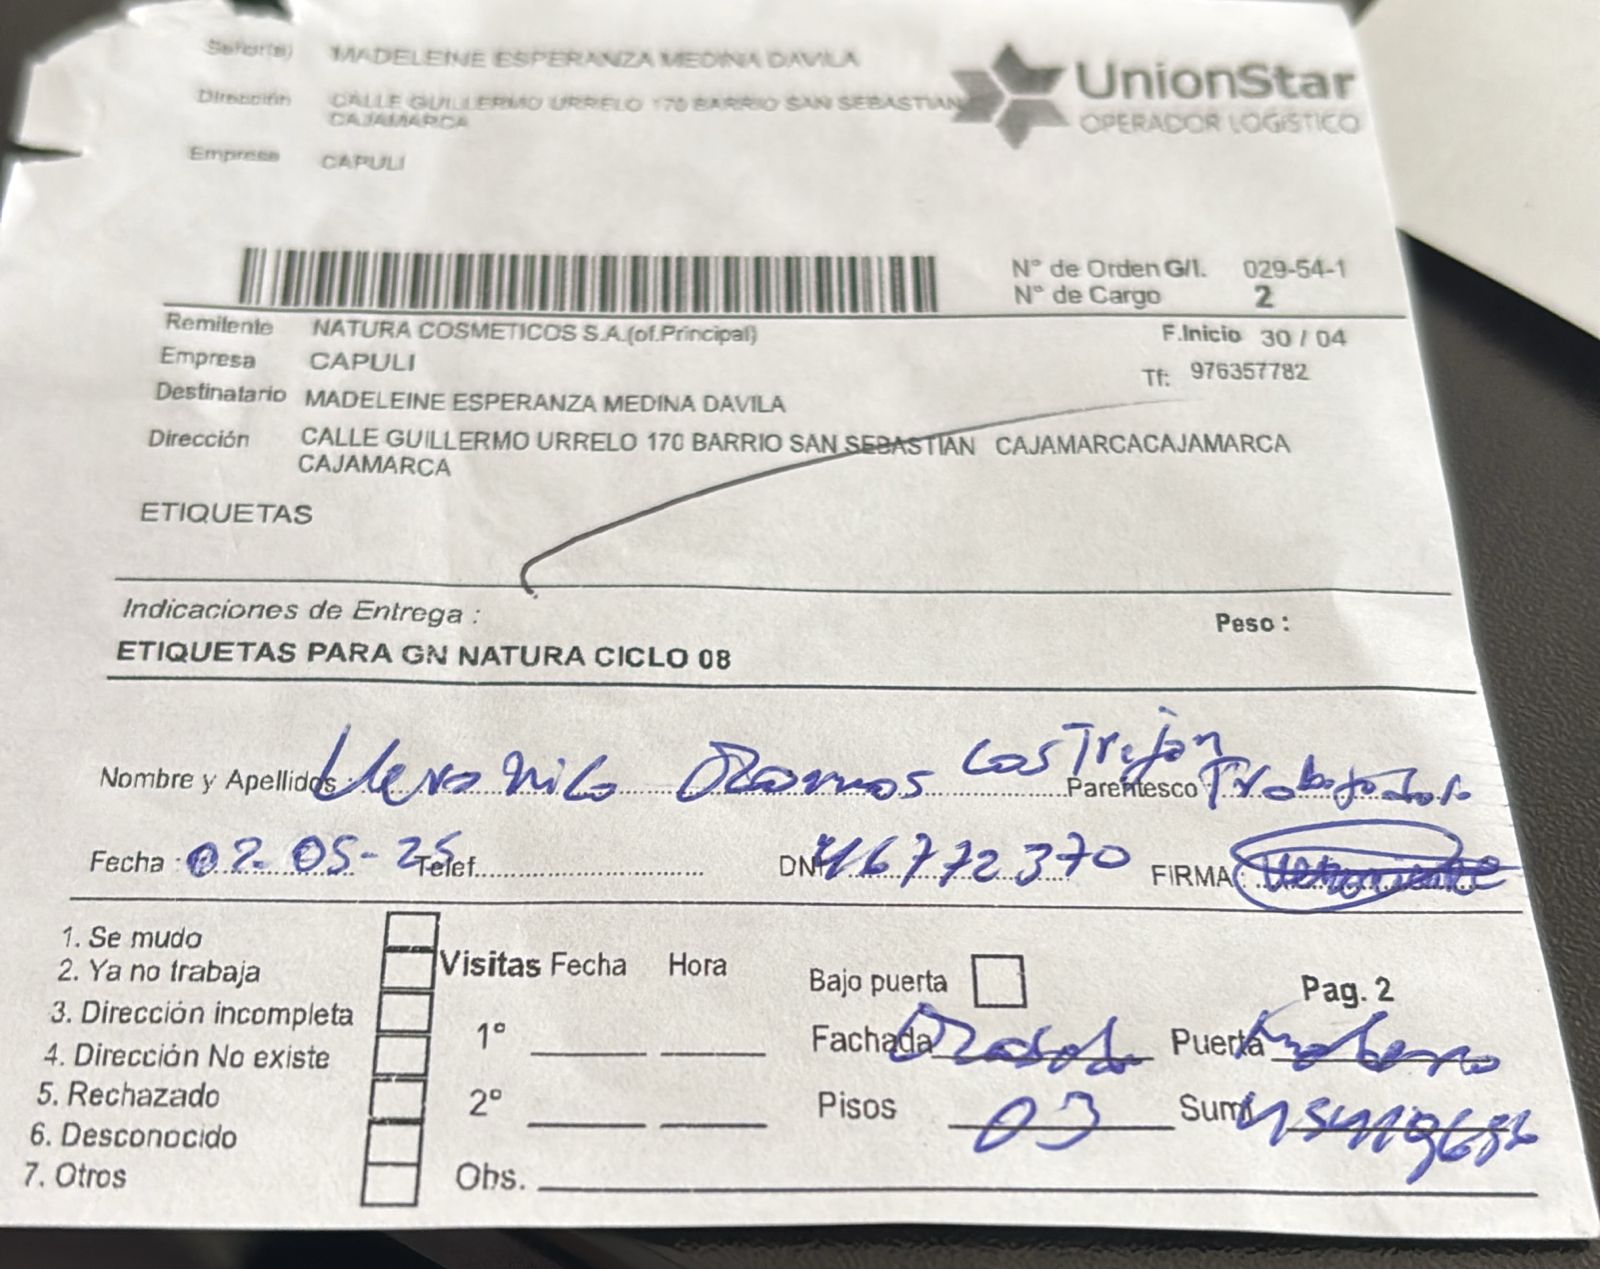 Señor(s) MADELEINE ESPERANZA MEDINA DAVILA
UnionStar
OPERADOR LOGíSTICO
Dirección CALLE GUILLERMO URRELO 170 BARRIO SAN SEBASTIAN
CAJAMARCA
Empresa CAPULI
N° de Orden G/I. 029-54-1
N° de Cargo 2
Remitente NATURA COSMETICOS S.A.(of.Principal) F.Inicio 30 / 04
Empresa CAPULI Tf: 976357782
Destinatario MADELEINE ESPERANZA MEDINA DAVILA
Dirección CALLE GUILLERMO URRELO 170 BARRIO SAN SEBASTIAN CAJAMARCACAJAMARCA
CAJAMARCA
ETIQUETAS
Indicaciones de Entrega : Peso :
ETIQUETAS PARA GN NATURA CICLO 08
Nombre y Apellidos Ramos Castrejón Parentesco Trabajadora
Fecha : 02.05-25 Telef. DNI 46772370 FIRMA:
1. Se mudo
2. Ya no trabaja
3. Dirección incompleta
4. Dirección No existe
5. Rechazado
6. Desconocido
7. Otros
Visitas Fecha Hora
1°
2°
Obs.
Bajo puerta Pag. 2
Fachada Puerta
Pisos 03 Sum